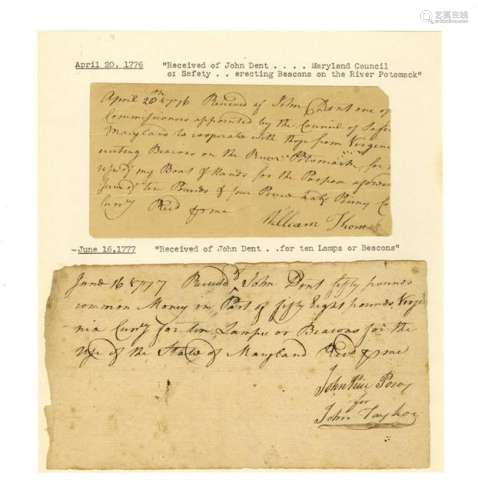 April 20, 1776 "Received of John Dent . . . . Maryland Council
oz Safety . . erecting Beacons on the River Potomack"
April 20th 1776 Received of John Dent one of
Commissioners appointed by the Council of Safe
Maryland to cooperate with those from Virginia
erecting Beacons on the River Potomack for
my Boat & Hands for the Purpose aforesd
ten Pounds & four Pence half Penny C
Curry Recd of me
William Thomas
-June 16,1777 "Received of John Dent . ..for ten Lamps or Beacons"
June 16 1777 Received John Dent fifty pounds
common Money in Part of fifty Eight pounds Virgi
nia Curry for ten Lamps or Beacons for the
Use of the State of Maryland Recd of me
John
for
John Taylor